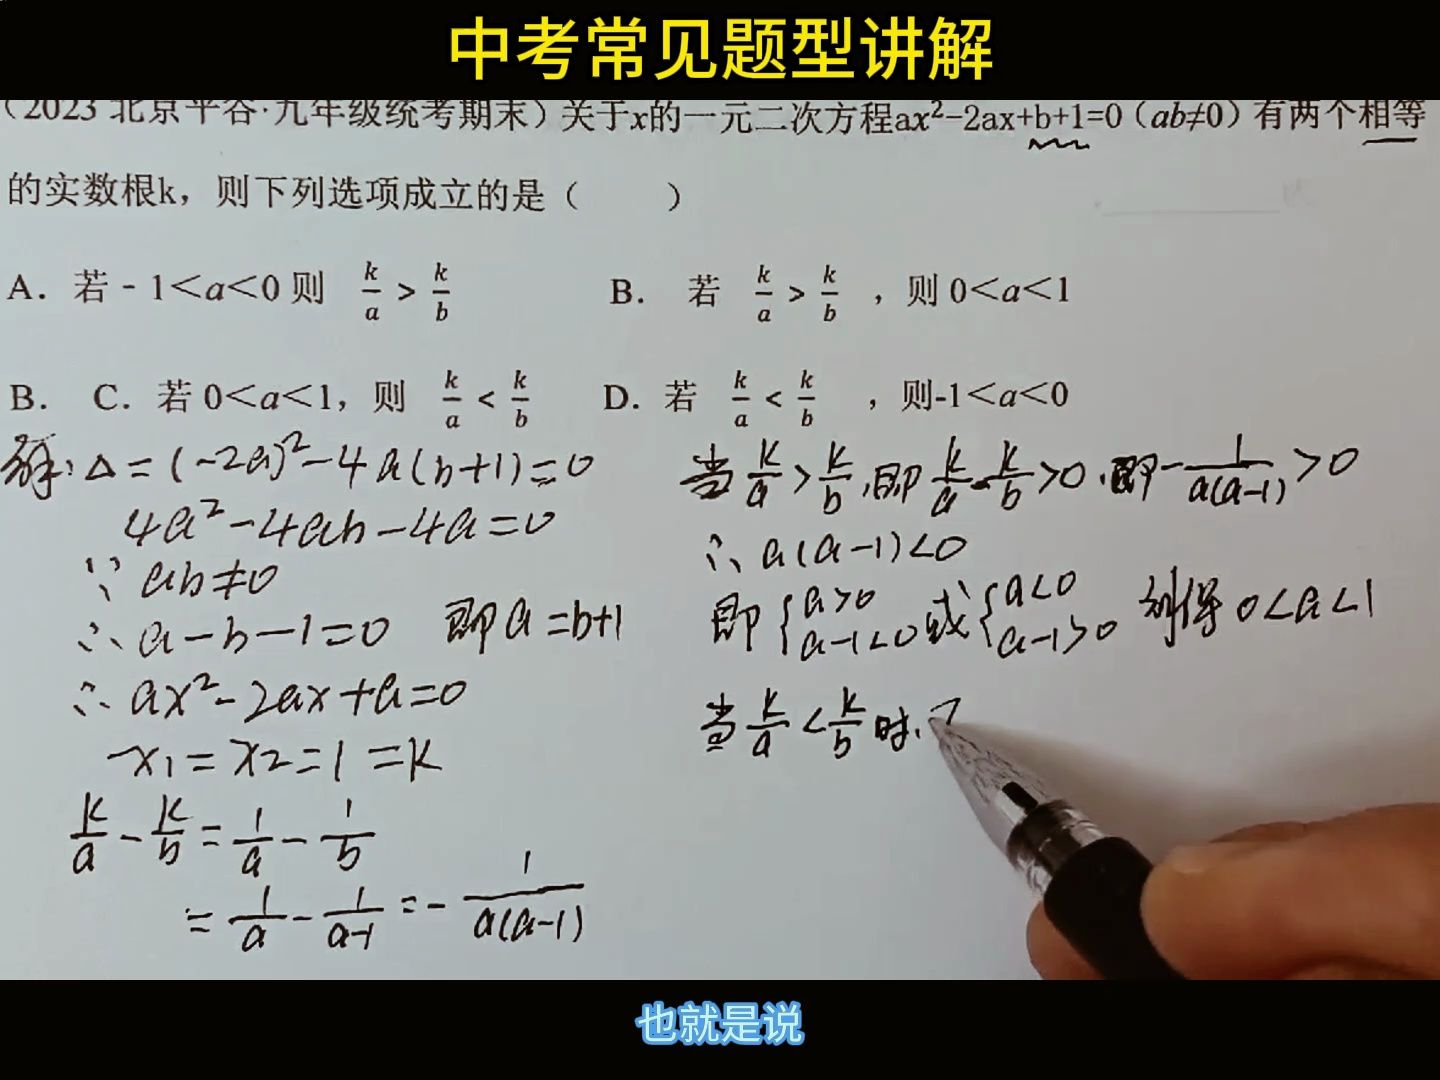 中考常见题型讲解
（2023 北京平谷·九年级统考期末）关于x的一元二次方程ax²-2ax+b+1=0（ab≠0）有两个相等
的实数根k，则下列选项成立的是（ ）
A. 若 - 1<a<0 则 k/a > k/b
B. 若 k/a > k/b ，则 0<a<1
B. C. 若 0<a<1，则 k/a < k/b
D. 若 k/a < k/b ，则-1<a<0
解：△=(-2a)²-4a(b+1)=0
4a²-4ab-4a=0
∵ ab≠0
∴ a-b-1=0 即a=b+1
∴ ax²-2ax+a=0
x1=x2=1=k
k/a - k/b = 1/a - 1/b
= 1/a - 1/(a-1) = - 1/(a(a-1))
当 k/a > k/b，即 k/a - k/b >0，即 - 1/(a(a-1)) >0
∴ a(a-1)<0
即 {a>0 a-1<0 或 {a<0 a-1>0 得 0<a<1
当 k/a < k/b 时，
也就是说